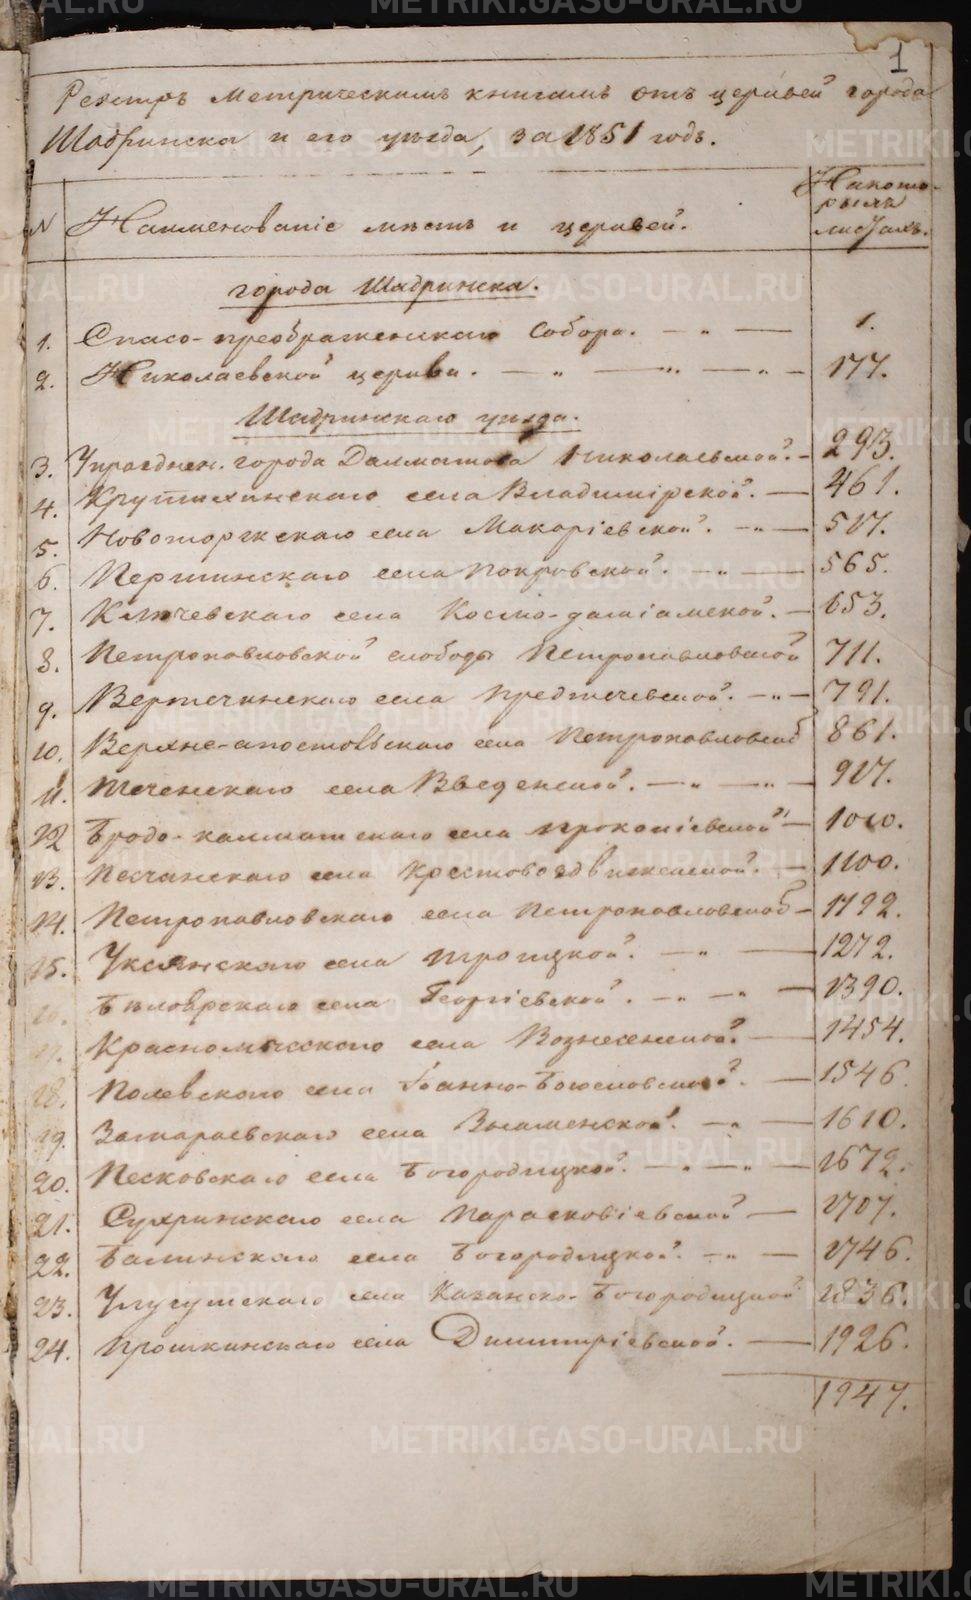 1
Реэстръ метрическимъ книгамъ отъ церквей города
Шадринска и его уѣзда, за 1851 годъ.
N Наименованіе мѣстъ и церквей. На кото-
рыхъ
листахъ.
города Шадринска.
1. Спасо-преображенскаго Собора. — „ — 1.
2. Николаевской церкви. — „ — „ — „ — 177.
Шадринскаго уѣзда.
3. Упразднен. города Далматова Николаевской. — 293.
4. Крутихинскаго села Владимірской. — 461.
5. Новоторжскаго села Макаріевской. — „ — 517.
6. Першинскаго села Покровской. — „ — 565.
7. Ключевскаго села Косьмо-даміамской. — 653.
8. Петропавловской слободы Петропавловской 711.
9. Вертечинскаго села Предтечевской. — „ — 791.
10. Верхне-апостольскаго села Петропавловской 861.
11. Теченскаго села Введенской. — „ — „ — 917.
12 Бродо-калматскаго села Прокопіевской — 1010.
13. Песчанскаго села Крестовоздвиженской. — 1100.
14. Петропавловскаго села Петропавловской — 1192.
15. Уксянскаго села Троицкой. — „ — 1272.
16. Бѣлоярскаго села Георгіевской. — „ — „ — 1390.
17. Красномысскаго села Вознесенской. — 1454.
18. Полевскаго села Іоанно-Богословской. — 1546.
19. Замараевскаго села Знаменской. — „ — 1610.
20. Песковскаго села Богородицкой. — „ — „ — 1672.
21. Сухринскаго села Парасковіевской — 1707.
22. Баминскаго села Богородицкой. — „ — 1746.
23. Углугушскаго села Казанско-Богородицкой 1836.
24. Прошкинскаго села Димитріевской. — 1926.
1947.
METRIKI.GASO-URAL.RU